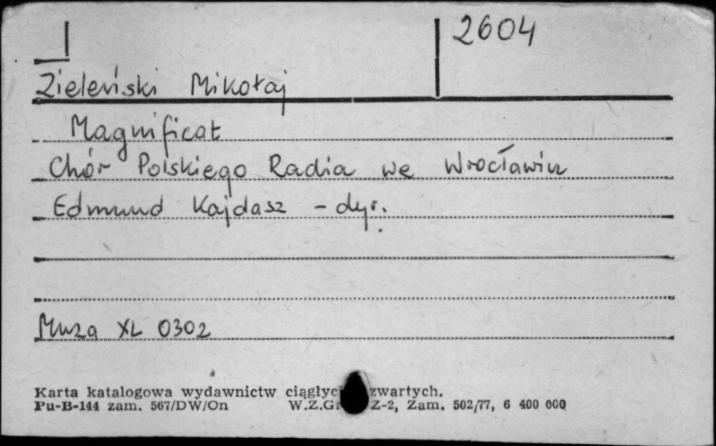 2604
Zieleński Mikołaj
Magnificat
Chór Polskiego Radia we Wrocławiu
Edmund Kajdasz - dyr.
Muza XL 0302
Karta katalogowa wydawnictw zwartych.
Pu-B-144 zam. 567/DW/On Z-2, Zam. 502/77, 6 400 000